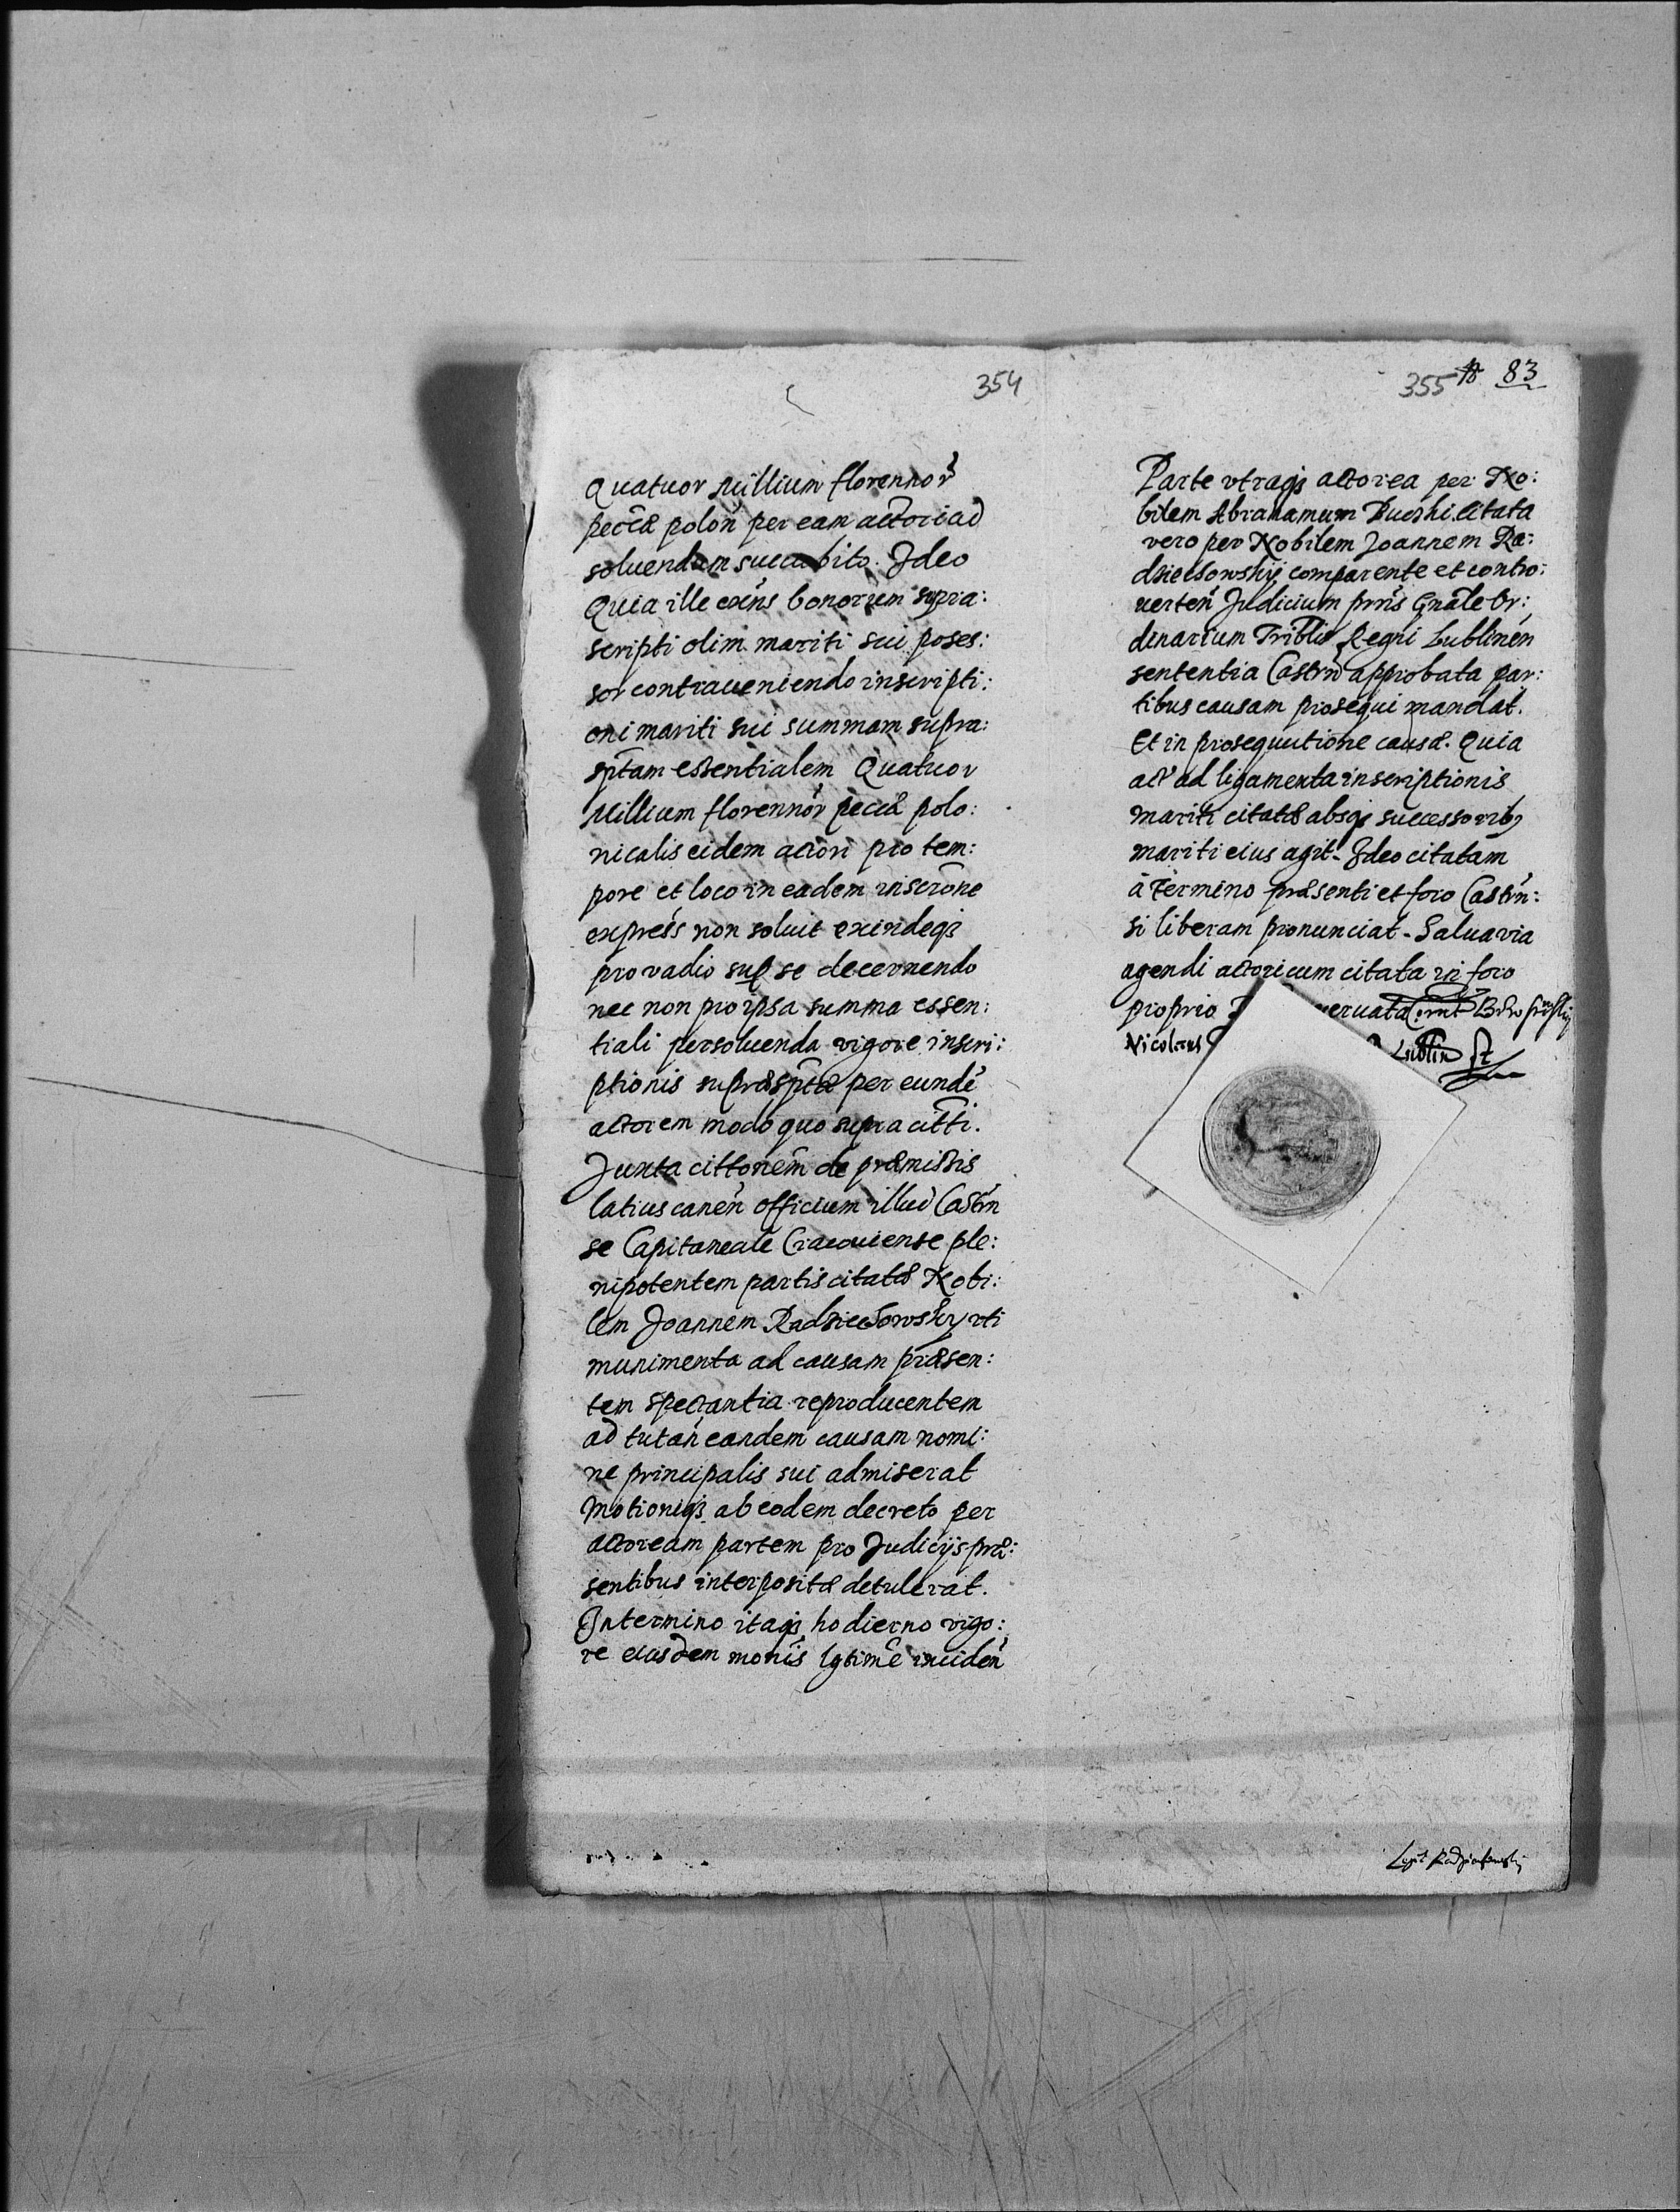 354
Quatuor Millium florennor̃
pecĉæ polon̄ per eam actori ad
soluendam succubito. Ideo
Quia ille exn̄s bonorum supra:
scripti olim mariti sui poses:
sor contraueniendo inscripti:
oni mariti sui summam supra:
sp̄tam essentialem Quatuor
Millium florennor̃ pecĉæ polo:
nicalis eidem actori pro tem:
pore et loco in eadem inscr̄one
expres̄s non soluit exindeq;
pro vadio sup se decernendo
nec non pro ipsa summa essen:
tiali persoluenda vigore inscri:
ptionis supræsp̄tæ per eundē
actorem modo quo supra citti.
Juxta cittonem̄ de præmissis
latius canen̄ officium illud Castrn̄
se Capitaneale Cracouiense ple:
nipotentem partis citatæ Nobi:
lem Joannem Radzieiowsky vti
munimenta ad causam præsen:
tem spectantia reproducentem
ad tutan̄ eandem causam nomi:
ne principalis sui admiserat
Motioniq; ab eodem decreto per
actoream partem pro Judicijs præ:
sentibus interpositæ detulerat.
In termino itaq; hodierno vigo:
re eiusdem mon̄is lgtimē inciden̄
355 83
Parte vtraq; actorea per No:
bilem Abrahamum citata
vero per Nobilem Joannem Ra:
comparente et contro:
uerten̄ Judicium prn̄s Gn̄ale Or:
dinarium Triblis Regni Lublinen̄
sententia Castrn̄ approbata par:
tibus causam prosequi mandat.
Et in prosequutione causæ. Quia
act̄ ad ligamenta inscriptionis
mariti citatæ absq; successorib9
mariti eius agit. Ideo citatam
à termino præsenti et foro Castrn̄:
si liberam pronunciat. Salua via
agendi actori cum citata in foro
proprio eruata
Nicolaus Lublin
Legit